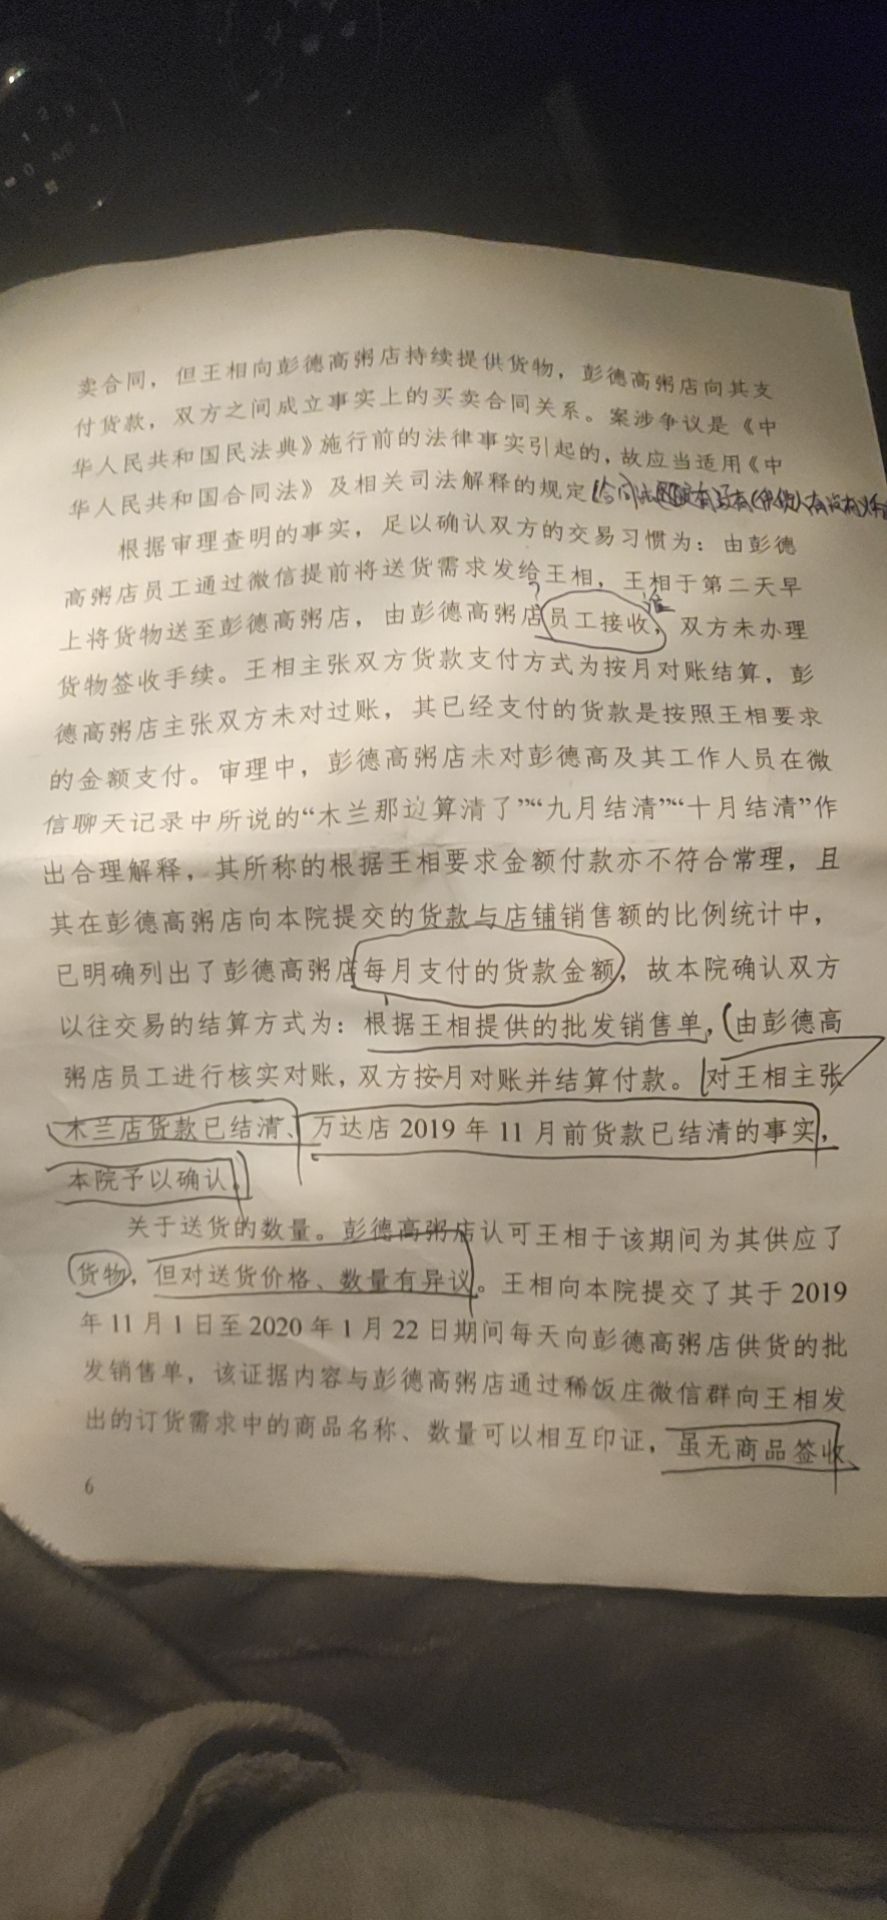 卖合同，但王相向彭德高粥店持续提供货物，彭德高粥店向其支
付货款，双方之间成立事实上的买卖合同关系。案涉争议是《中
华人民共和国民法典》施行前的法律事实引起的，故应当适用《中
华人民共和国合同法》及相关司法解释的规定
根据审理查明的事实，足以确认双方的交易习惯为：由彭德
高粥店员工通过微信提前将送货需求发给王相，王相于第二天早
上将货物送至彭德高粥店，由彭德高粥店员工接收，双方未办理
货物签收手续。王相主张双方货款支付方式为按月对账结算，彭
德高粥店主张双方未对过账，其已经支付的货款是按照王相要求
的金额支付。审理中，彭德高粥店未对彭德高及其工作人员在微
信聊天记录中所说的“木兰那边算清了”“九月结清”“十月结清”作
出合理解释，其所称的根据王相要求金额付款亦不符合常理，且
其在彭德高粥店向本院提交的货款与店铺销售额的比例统计中，
已明确列出了彭德高粥店每月支付的货款金额，故本院确认双方
以往交易的结算方式为：根据王相提供的批发销售单，由彭德高
粥店员工进行核实对账，双方按月对账并结算付款。对王相主张
木兰店货款已结清、万达店 2019 年 11 月前货款已结清的事实，
本院予以确认。
关于送货的数量。彭德高粥店认可王相于该期间为其供应了
货物，但对送货价格、数量有异议。王相向本院提交了其于 2019
年 11 月 1 日至 2020 年 1 月 22 日期间每天向彭德高粥店供货的批
发销售单，该证据内容与彭德高粥店通过稀饭庄微信群向王相发
出的订货需求中的商品名称、数量可以相互印证，虽无商品签收
6